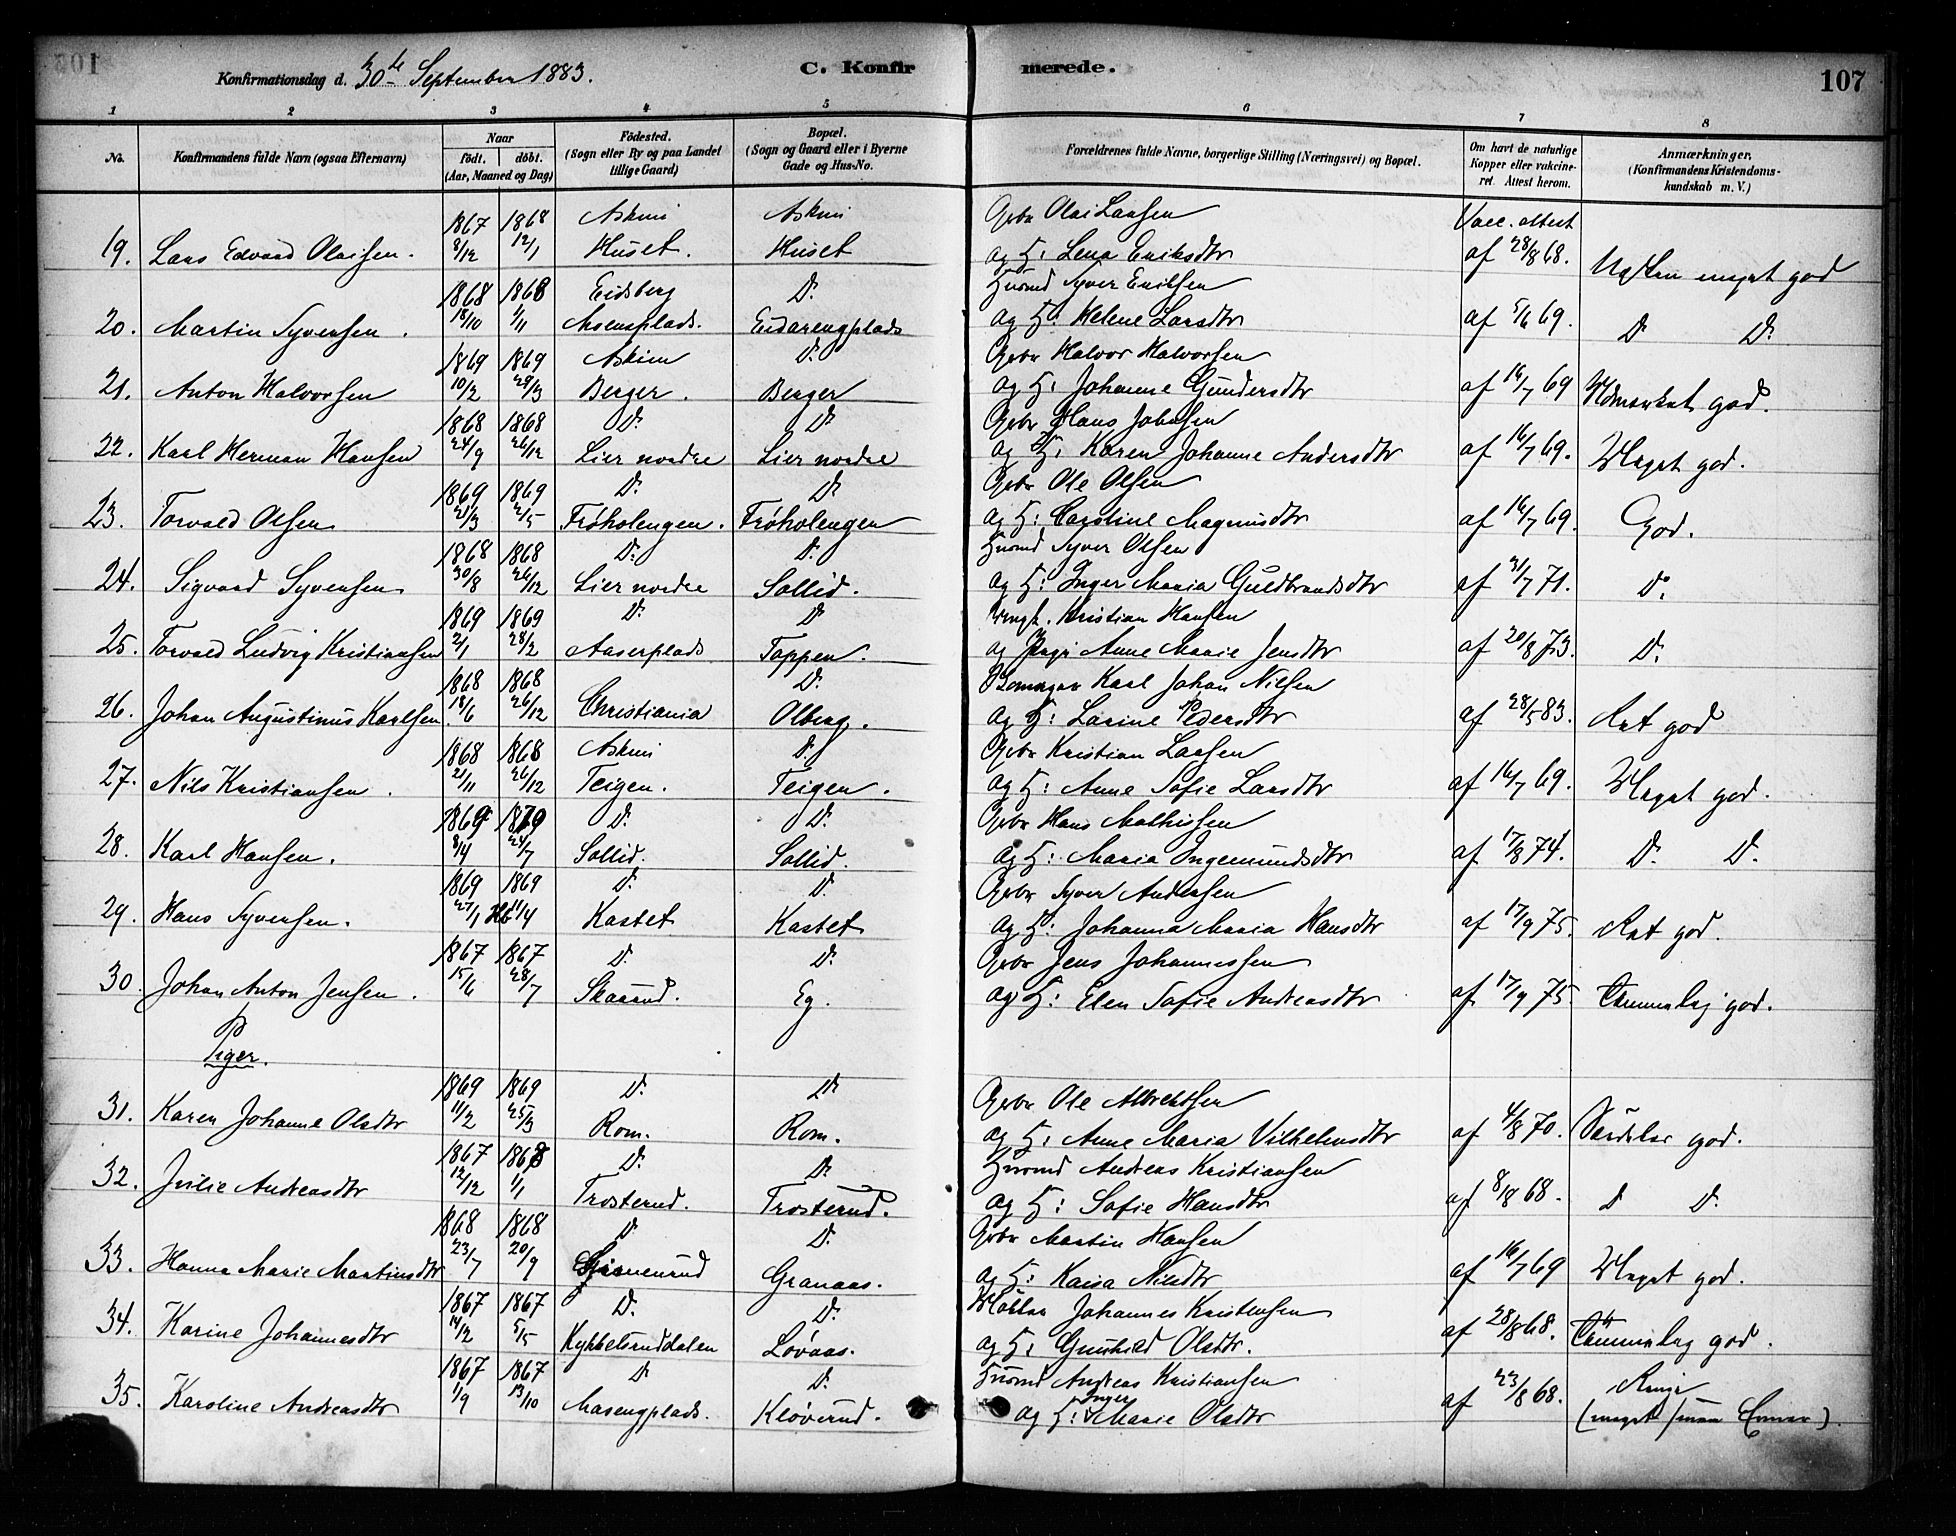 Konfirmationsdag d. 30te September 1883.
C. Konfirmerede.
107
1 2 3 4 5 6 7 8
No.
Konfirmandens fulde Navn (ogsaa Efternavn)
Naar
født. døbt.
(Aar, Maaned og Dag)
Födested.
(Sogn eller By og paa Landet
tillige Gaard)
Bopæl.
(Sogn og Gaard eller i Byerne
Gade og Hus-No.
Forældrenes fulde Navne, borgerlige Stilling (Næringsvei) og Bopæl.
Om havt de naturlige
Kopper eller vakcine-
ret. Attest herom.
Anmærkninger.
(Konfirmandens Kristendoms-
kundskab m. V.)
1867 1868 Askim Askim Gbr Olai Larsen Vacc. attest
19. Lars Edvard Olaisen. 8/12 12/1 Huset. Huset og H: Lena Eriksdtr af 28/8 68. meget god
1868 1868 Eidsberg Do Husmd Syver Evilsen
20. Martin Syversen. 18/10 1/11 Moensplads. og H: Helene Larsdtr af 5/6 69. Do Do
1869 1869 Askim Do Gbr Halvor Halvorsen
21. Anton Halvorsen 10/2 29/3 Berger. Berger og H: Johanne Gundersdtr af 16/7 69 Udmærket god.
1868 1868 Do Do Gbr Hans Johnsen
22. Karl Herman Hansen 24/9 26/12 Lier nordre Lier nordre og H: Karen Johanne Andersdtr af 16/7 69. Meget god.
1869 1869 Do Do Gbr Ole Olsen
23. Torvald Olsen 21/3 2/5 Frøholengen. Frøholengen og H: Caroline Magnusdtr af 16/7 69. God.
1868 1868 Do Do Husmd Syver Olsen
24. Sigvard Syversen 30/8 26/12 Lier nordre Sollid. og H: Inger Maria Guldbrandsdtr af 31/7 71. Do
1869 1869 Do Do Ungk. Kristian Hansen
25. Torvald Ludvig Kristiansen 2/1 28/2 Aaserplads Toppen. og Pige Anne Marie Jensdtr af 20/8 73. Do
1868 1868 Do Karl Johan Nilsen
26. Johan Augustinus Karlsen. 18/6 26/12 Christiania Olberg. og H: Larine Pedersdtr af 28/5 83. god
1868 1868 Askim Do Gbr Kristian Larsen
27. Nils Kristiansen. 21/11 26/12 Teigen. Teigen. og H: Anne Sofie Larsdtr af 16/7 69. Meget god.
1869 Do Do Gbr Hans Mathisen
28. Karl Hansen. 8/4 24/7 Sollid. Sollid. og H: Maria Ingemundsdtr af 17/8 74. Do Do
1869 1869 Do Do Gbr Syver Andersen
29. Hans Syversen. 27/1 11/4 Kastet Kastet og H: Johanna Maria Hansdtr af 17/9 75. god.
1867 1867 Do Do Gbr Jens Johannessen
30. Johan Anton Jensen. 15/6 28/7 Skaarud. Eg. og H: Elen Sofie Andreasdtr af 17/9 75 Temmelig god.
Piger.
1869 1869 Do Do Gbr Ole Albretsen
31. Karen Johanne Olsdtr 11/2 25/3 Rom. Rom. og H: Anne Maria Vilhelmsdtr af 4/8 70. Særdeles god.
1867 1868 Do Do Husmd Andreas Kristiansen
32. Julie Andreasdtr 12/12 1/1 Trosterud. Trosterud. og H: Sofie Hansdtr af 8/8 68. Do Do
1868 1868 Do Do Gbr Martin Hansen
33. Hanna Marie Martinsdtr 23/7 20/9 Granaas. og H: Kaisa Nilsdtr af 16/7 69 Meget god.
1867 1867 Do Do Møller Johannes Kristensen
34. Karine Johannesdtr 14/2 5/5 Kykkelsruddalen Løvaas. og H: Gunhild Olsdtr. af 28/8 68. Temmelig god.
1867 1867 Do Do Husmd Andreas Kristiansen
35. Karoline Andreasdtr 1/9 13/10 Masengplads. Kløverud. og H: Inger Marie Olsdtr af 23/8 68. Ringe
(meget